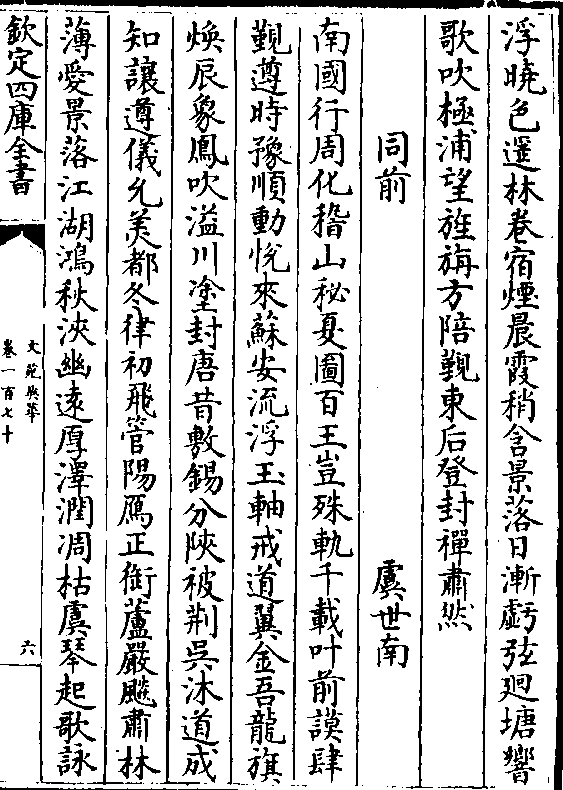 浮曉色邐林卷宿煙晨霞稍含景落日漸虧弦廻塘響
歌吹極浦望旌旃方陪覲東后登封禪肅然
同前　虞世南
南國行周化稽山秘夏圖百王豈殊軌千載叶前謨肆
覲遵時豫順動悅來蘇安流浮玉軸戒道翼金吾龍旗
煥辰象鳳吹溢川塗封唐昔敷錫分陝被荆吳沐道咸
知讓遵儀允美都冬律初飛管陽鴈正銜蘆嚴飈肅林
薄愛景落江湖鴻秋浹幽遠厚澤潤凋枯虞琴起歌詠
欽定四庫全書
文苑英華
卷一百七十
六